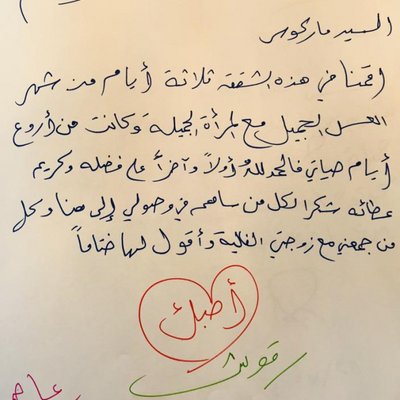 السيد ماركوس
اقمنا في هذه الشقة ثلاثة أيام من شهر
العسل الجميل مع المرأة الجميلة وكانت من أروع
أيام حياتي فالحمد لله أولاً وآخراً على فضله وكريم
عطائه شكرا لكل من ساهم في وصولي إلى هنا ولكل
من جمعني مع زوجتي الغالية وأقول لها ختاماً
أحبك